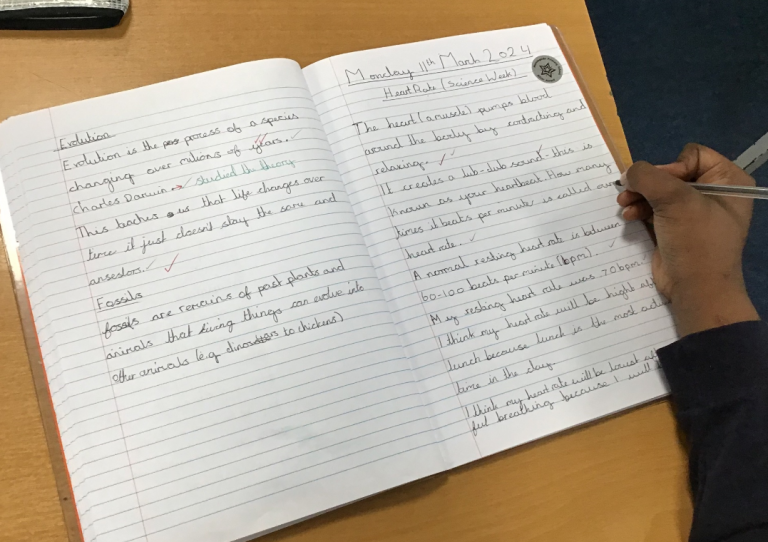 Evolution
Evolution is the process of a species
changing over milions of years.
Charles Darwin. studied the theory
This is that life changes over
time it just doesn't stay the same and
ansestors.
Fossils
fossils are remains of past plants and
animals that living things can evolve into
other animals (e.g. dinosaurs to chickens)
Monday 11th March 2024
Heart Rate (Science Week)
The heart (a muscle) pumps blood
around the body by contracting and
relaxing.
It creates a lub-dub sound - this is
known as your heartbeat. How many
times it beats per minute is called our
heart rate.
A normal resting heart rate is between
60-100 beats per minute (bpm).
My resting heart rate was 70bpm.
I think my heart rate will be hight
lunch because lunch is the most
time in the day.
I think my heart rate will be lowest
ful breathing because I will